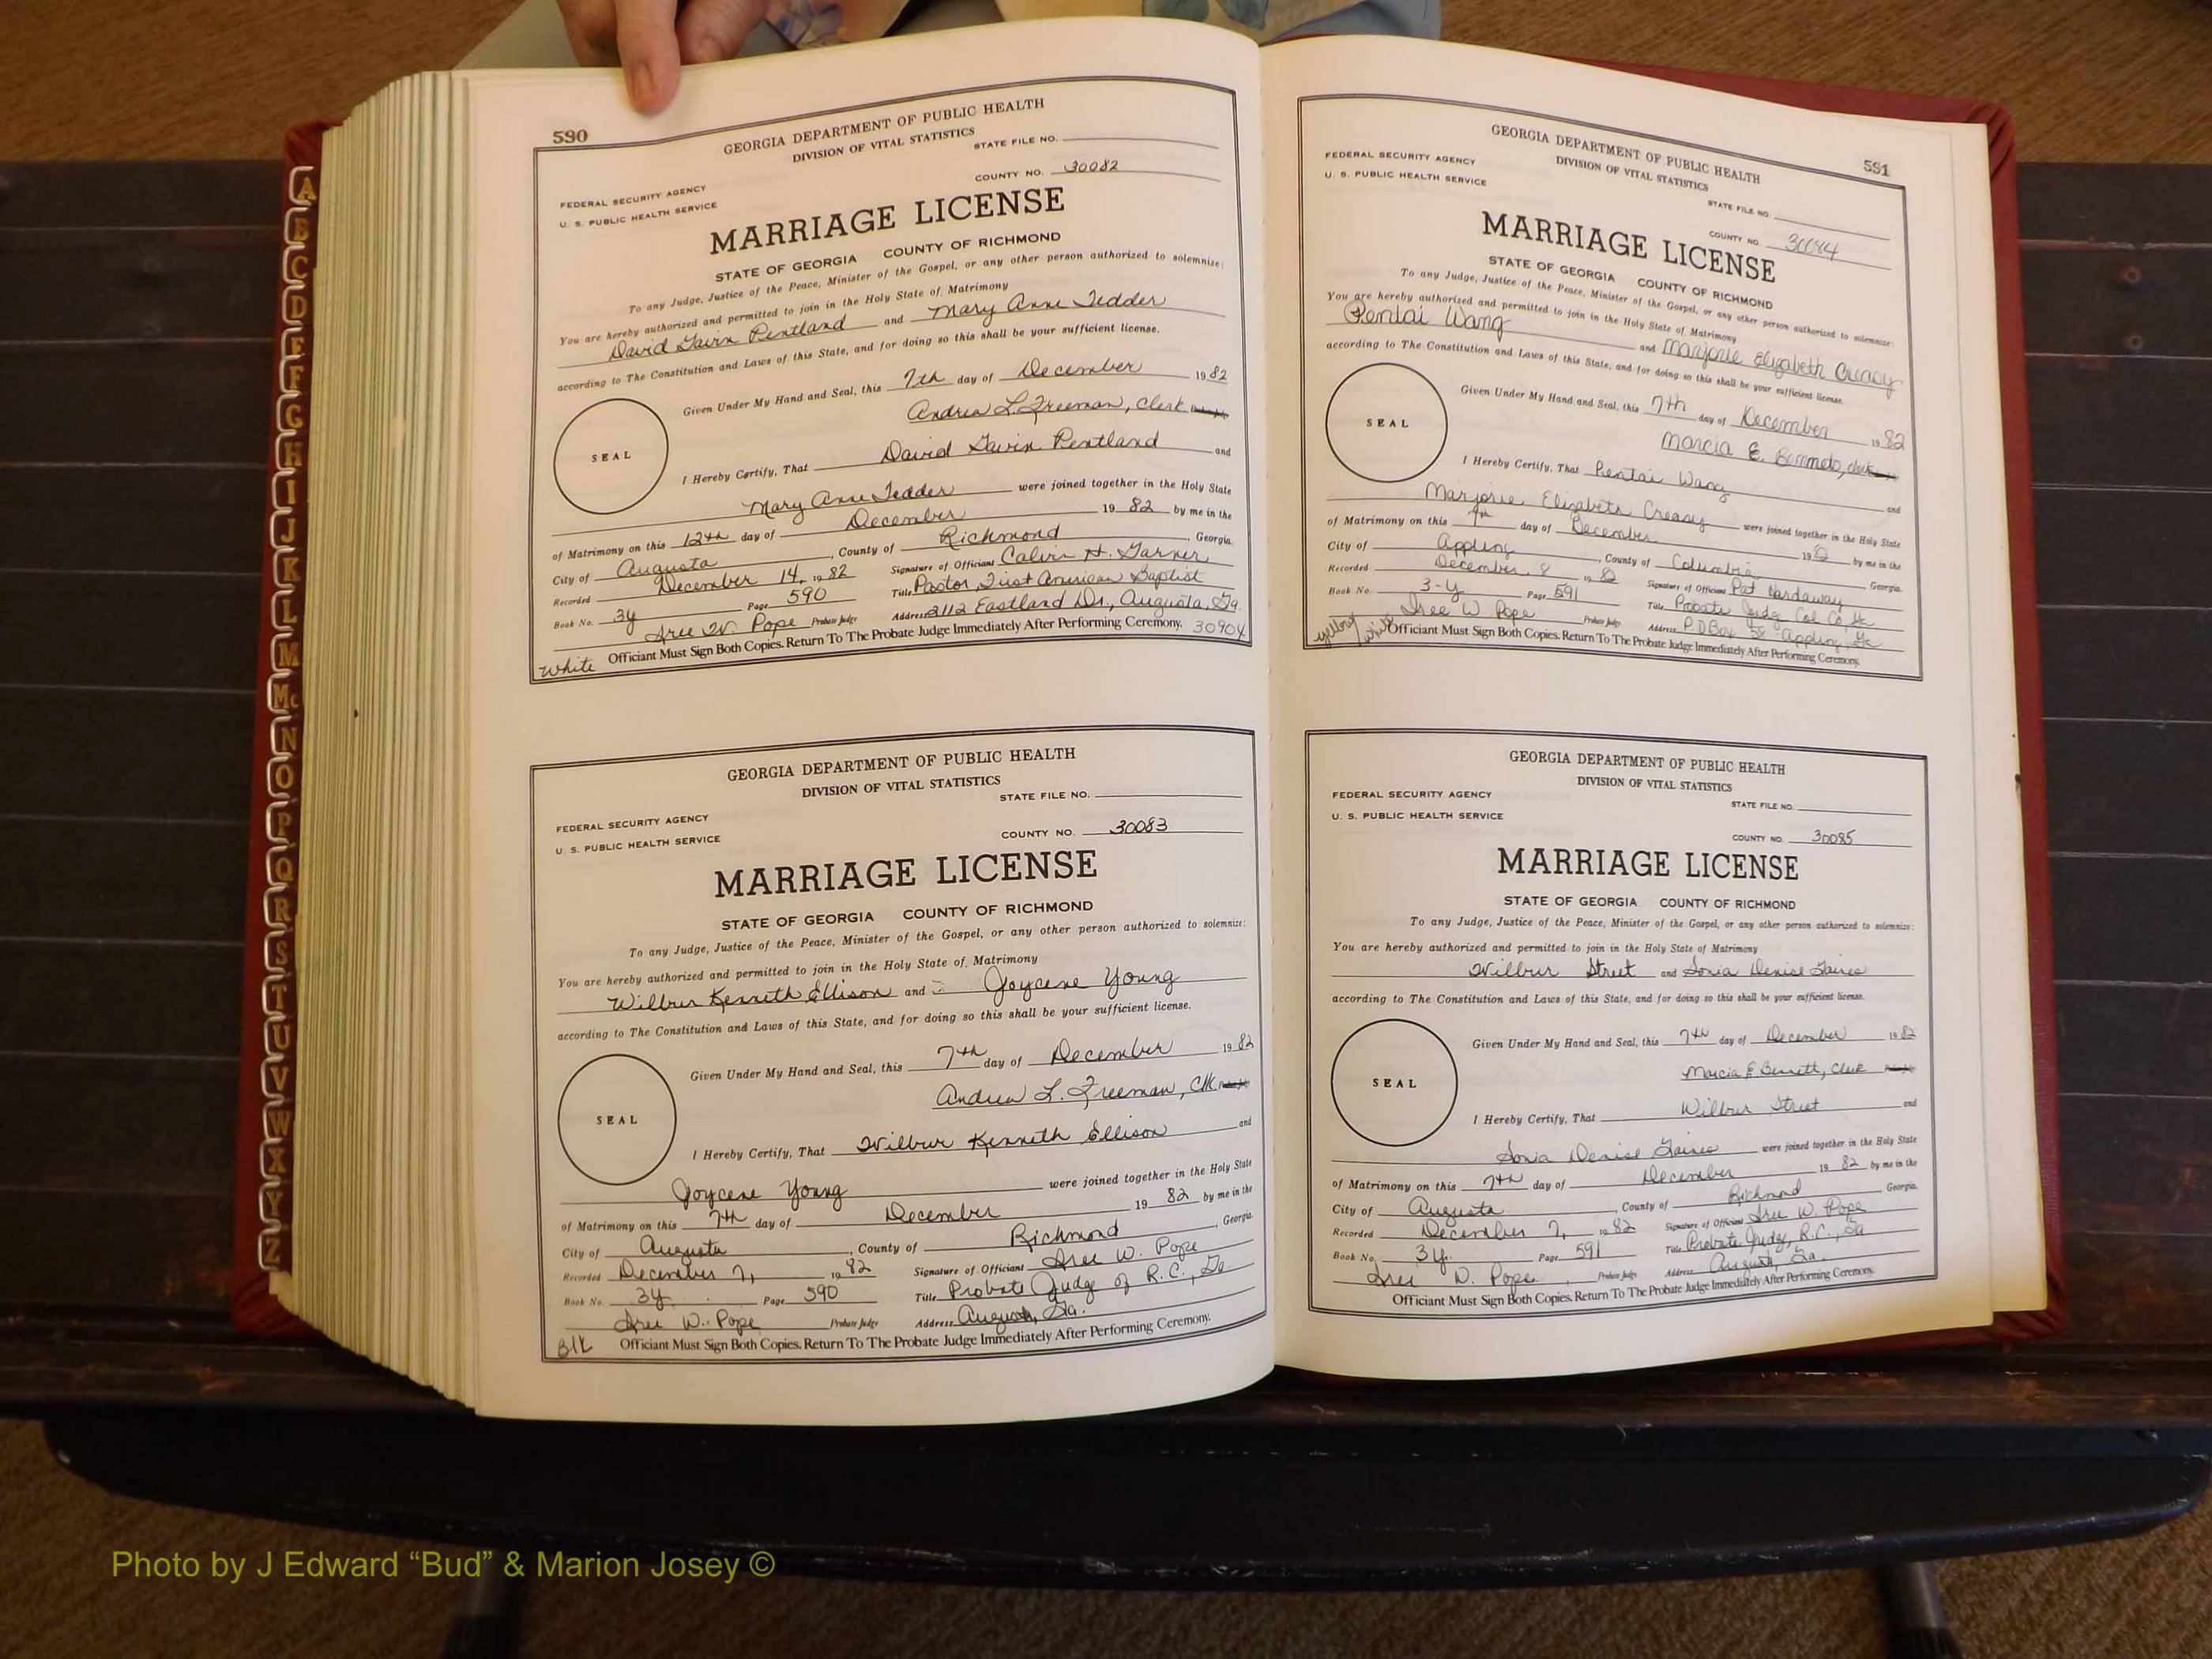 590
GEORGIA DEPARTMENT OF PUBLIC HEALTH
DIVISION OF VITAL STATISTICS
STATE FILE NO.
FEDERAL SECURITY AGENCY
U. S. PUBLIC HEALTH SERVICE
COUNTY NO. 30082
MARRIAGE LICENSE
STATE OF GEORGIA COUNTY OF RICHMOND
To any Judge, Justice of the Peace, Minister of the Gospel, or any other person authorized to solemnize:
You are hereby authorized and permitted to join in the Holy State of Matrimony
David Gavin Pentland and Mary Anne Tedder
according to The Constitution and Laws of this State, and for doing so this shall be your sufficient license.
Given Under My Hand and Seal, this 7th day of December 1982
Andrea L. Freeman, Clerk
SEAL
I Hereby Certify, That David Gavin Pentland and
Mary Anne Tedder were joined together in the Holy State
of Matrimony on this 12th day of December 19 82 by me in the
City of Augusta, County of Richmond, Georgia.
Recorded December 14, 1982 Signature of Official Calvin H. Garner
Book No. 3y Page 590 Title Pastor, First American Baptist
Iree W. Pope Probate Judge Address 2112 Eastland Dr., Augusta, Ga. 30904
White Officiant Must Sign Both Copies. Return To The Probate Judge Immediately After Performing Ceremony.
GEORGIA DEPARTMENT OF PUBLIC HEALTH
DIVISION OF VITAL STATISTICS
STATE FILE NO.
FEDERAL SECURITY AGENCY
U. S. PUBLIC HEALTH SERVICE
COUNTY NO. 30083
MARRIAGE LICENSE
STATE OF GEORGIA COUNTY OF RICHMOND
To any Judge, Justice of the Peace, Minister of the Gospel, or any other person authorized to solemnize:
You are hereby authorized and permitted to join in the Holy State of Matrimony
Wilbur Kenneth Ellison and Joycene Young
according to The Constitution and Laws of this State, and for doing so this shall be your sufficient license.
Given Under My Hand and Seal, this 7th day of December 1982
Andrea L. Freeman, Clk
SEAL
I Hereby Certify, That Wilbur Kenneth Ellison and
Joycene Young were joined together in the Holy State
of Matrimony on this 7th day of December 19 82 by me in the
City of Augusta, County of Richmond, Georgia.
Recorded December 7, 1982 Signature of Official Iree W. Pope
Book No. 3y. Page 590 Title Probate Judge of R.C., Ga
Iree W. Pope Probate Judge Address Augusta, Ga.
Blk Officiant Must Sign Both Copies. Return To The Probate Judge Immediately After Performing Ceremony.
591
GEORGIA DEPARTMENT OF PUBLIC HEALTH
DIVISION OF VITAL STATISTICS
FEDERAL SECURITY AGENCY
U. S. PUBLIC HEALTH SERVICE
STATE FILE NO.
COUNTY NO. 30084
MARRIAGE LICENSE
STATE OF GEORGIA COUNTY OF RICHMOND
To any Judge, Justice of the Peace, Minister of the Gospel, or any other person authorized to solemnize:
You are hereby authorized and permitted to join in the Holy State of Matrimony
Pentai Wang and Marjorie Elizabeth Creasy
according to The Constitution and Laws of this State, and for doing so this shall be your sufficient license.
Given Under My Hand and Seal, this 7th day of December 1982
Marcia E. clerk
SEAL
I Hereby Certify, That Pentai Wang and
Marjorie Elizabeth Creasy were joined together in the Holy State
of Matrimony on this 7th day of December 1982 by me in the
City of Appling, County of Columbia Georgia.
Recorded December 8 1982 Signature of Official Pat Hardaway
Book No. 3-y Page 591 Title Probate Judg Col Co, Ga
Iree W Pope Probate Judge Address P.O Box 58 Appling, Ga
yellow white Officiant Must Sign Both Copies. Return To The Probate Judge Immediately After Performing Ceremony.
GEORGIA DEPARTMENT OF PUBLIC HEALTH
DIVISION OF VITAL STATISTICS
FEDERAL SECURITY AGENCY
U. S. PUBLIC HEALTH SERVICE
STATE FILE NO.
COUNTY NO. 30085
MARRIAGE LICENSE
STATE OF GEORGIA COUNTY OF RICHMOND
To any Judge, Justice of the Peace, Minister of the Gospel, or any other person authorized to solemnize:
You are hereby authorized and permitted to join in the Holy State of Matrimony
Wilbur Street and Sonia Denise Gaines
according to The Constitution and Laws of this State, and for doing so this shall be your sufficient license.
Given Under My Hand and Seal, this 7th day of December 1982
Marcia E. Bennett, Clerk
SEAL
I Hereby Certify, That Wilbur Street and
Sonia Denise Gaines were joined together in the Holy State
of Matrimony on this 7th day of December 1982 by me in the
City of Augusta, County of Richmond, Georgia.
Recorded December 7, 1982 Signature of Official Iree W. Pope
Book No. 3y. Page 591 Title Probate Judge, R.C., Ga
Iree W. Pope Probate Judge Address Augusta, Ga.
Officiant Must Sign Both Copies. Return To The Probate Judge Immediately After Performing Ceremony.
A
B
C
D
E
F
G
H
I
J
K
L
M
Mc
N
O
P
Q
R
S
T
U
V
W
X
Y
Z
Photo by J Edward “Bud” & Marion Josey ©